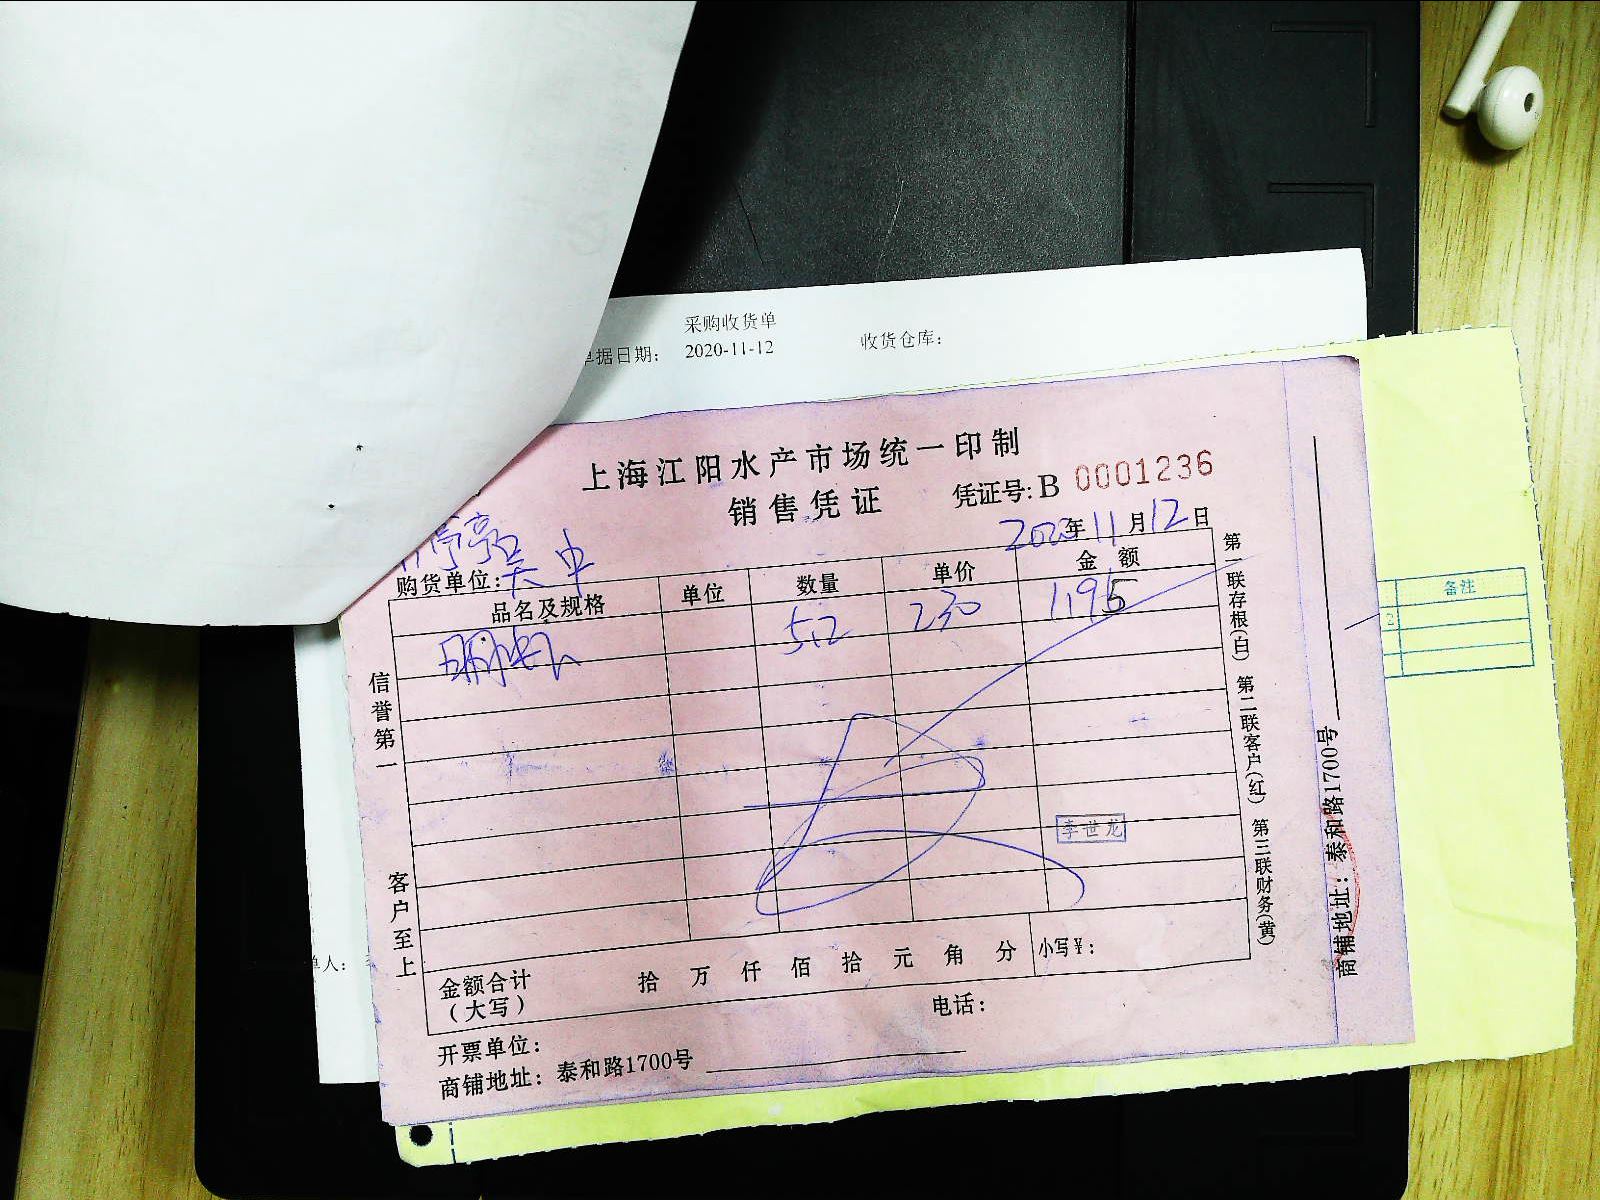 采购收货单
据日期： 2020-11-12 收货仓库：
上海江阳水产市场统一印制
销售凭证 凭证号: B 0001236
2020年11月12日
购货单位:
品名及规格 单位 数量 单价 金额
5.2 230 1195
信誉第一
客户至上
李世龙
金额合计（大写） 拾 万 仟 佰 拾 元 角 分 小写¥:
电话：
开票单位：
商铺地址：泰和路1700号
第一联存根(白) 第二联客户(红) 第三联财务(黄)
商铺地址：泰和路1700号
备注
单人：